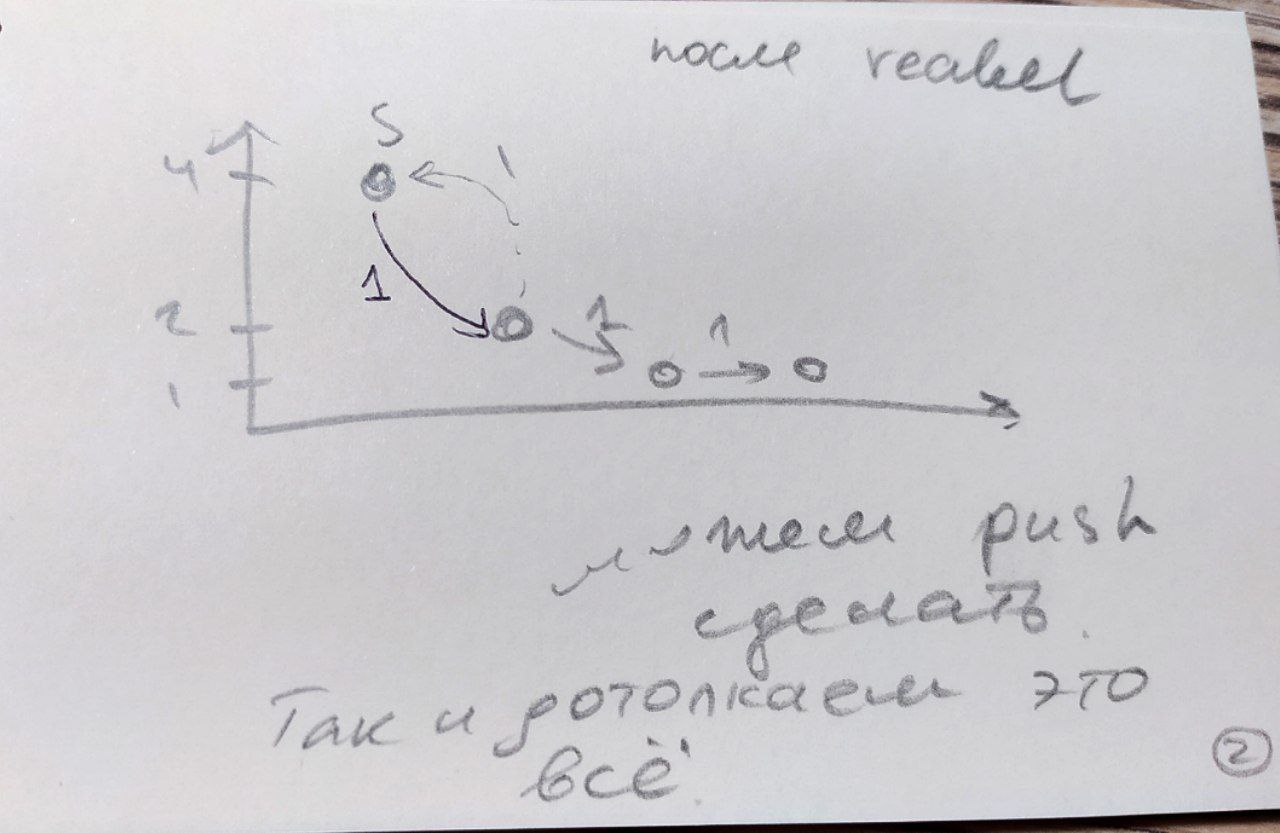 после relabel
S
4
1
1
2
1
1
1
можем push
сделать.
Так и дотолкаем это
всё.
2